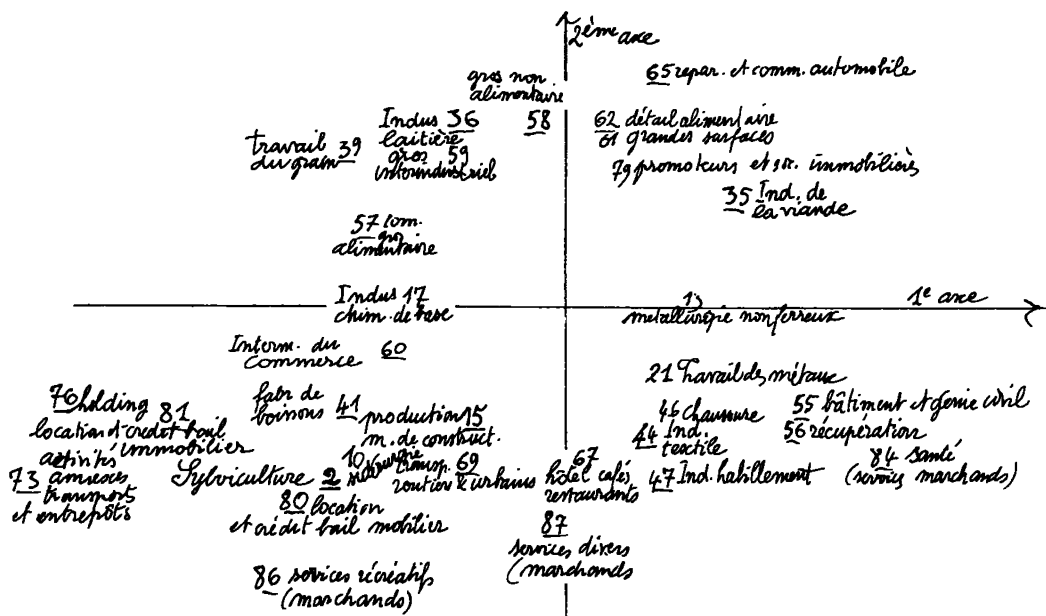 2ème axe
65 repar. et comm. automobile
gros non
alimentaire
58
Indus 36
laitière
gros 59
interindustriel
travail 39
du grain
62 détail alimentaire
61 grandes surfaces
79 promoteurs et soc. immobilières
35 Ind. de
la viande
57 Com.
gros
alimentaire
Indus 17
chim. de base
13
metallurgie non ferreux
1e axe
Interm. du
Commerce 60
21 Travail des métaux
76 holding
81
location et credit bail
immobilier
fabr de
boissons 41
production 15
m. de construct.
46 chaussure
44 Ind.
textile
55 bâtiment et genie civil
56 récupération
activités
73 annexes
transports
et entrepôts
Sylviculture 2
10
siderurgie
transp. 69
routiers & urbains
67
hôtel cafés
restaurants
47 Ind. habillement
84 santé
(services marchands)
80 location
et crédit bail mobilier
87
services divers
(marchands
86 services récréatifs
(marchands)